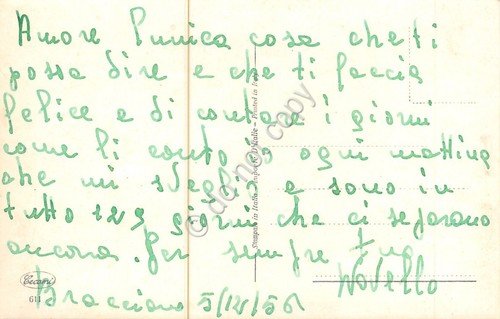 Amore l'unica cosa che ti
possa dire e che ti faccia
felice e di contare i giorni
come li conto io ogni mattina
che mi sveglio e sono in
tutto 129 giorni che ci separano
ancora. Per sempre tuo
Novello
Bracciano 5/12/56
Cecami
611
Stampato in Italia - Imprimé en Italie - Printed in Italy
do not copy